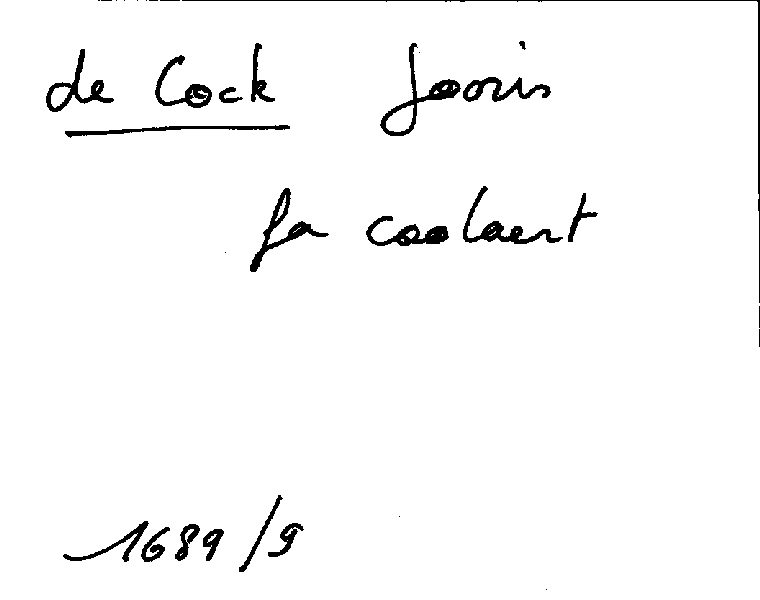 de Cock Jooris
fa coolaert
1689/9